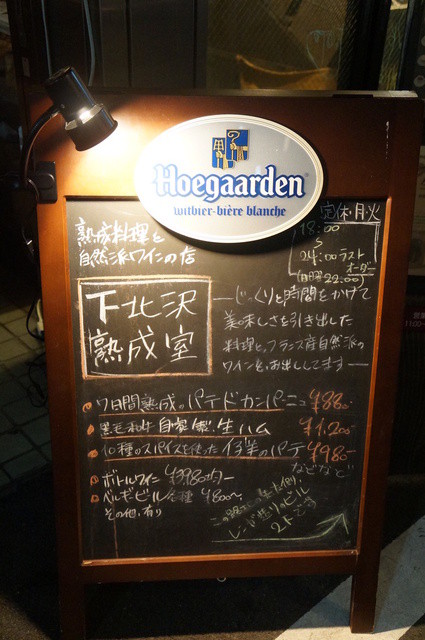 Hoegaarden
witbier-bière blanche
定休・月火
18:00
〜
24:00ラスト
オーダー
(日曜22:00)
熟成料理と
自然派ワインの店
下北沢
熟成室
―じっくりと時間をかけて
美味しさを引き出した
料理と、フランス産自然派の
ワインを、お出ししてます―
7日間熟成のパテドカンパーニュ ¥880-
黒毛和牛 自家製生ハム ¥1,200-
10種のスパイスを使った 仔羊のパテ ¥980-
などなど
ボトルワイン ¥3980均一
ベルギービール 各種 ¥800〜
その他、有り
この路地の
レンガ造りのビル
2Fです